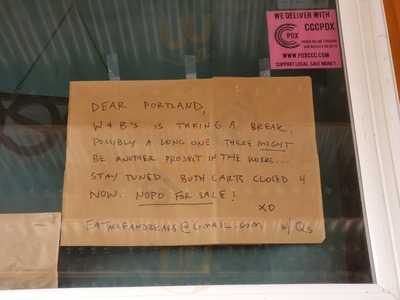 WE DELIVER WITH
CCC PDX
CCCPDX
WWW.PDXCCC.COM
SUPPORT LOCAL. SAVE MONEY.
DEAR PORTLAND,
W & B'S IS TAKING A BREAK,
POSSIBLY A LONG ONE. THERE MIGHT
BE ANOTHER PROJECT IN THE WORKS...
STAY TUNED. BOTH CARTS CLOSED 4
NOW. NOPO FOR SALE!
XO
w/ Qs